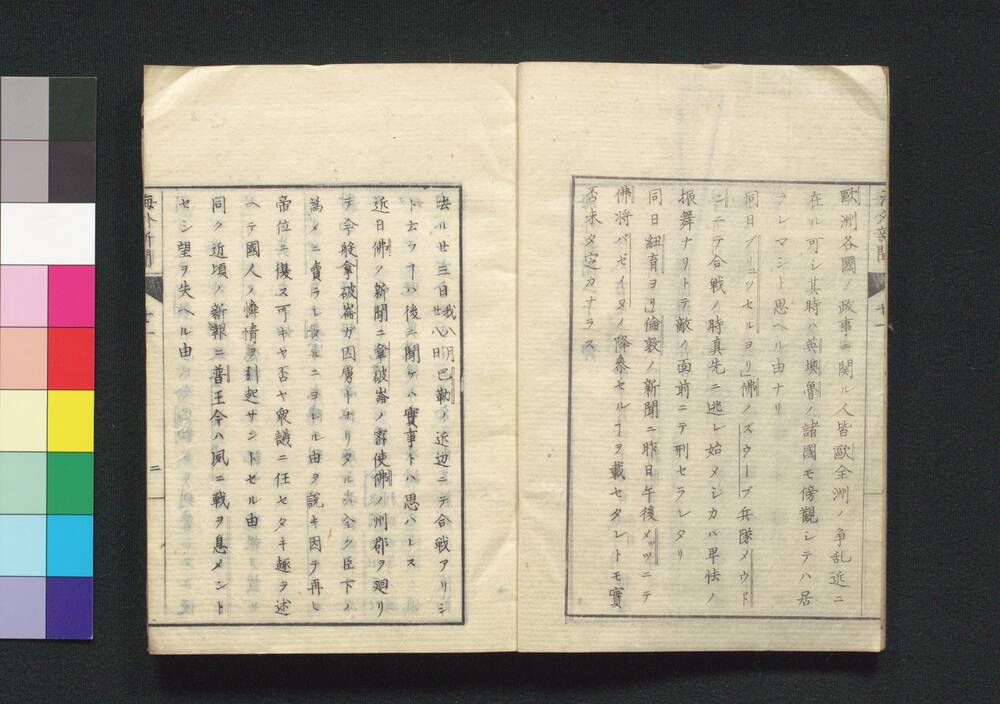 歐洲各國ノ政事ニ関ル人皆歐全洲ノ争乱近ニ
在ル可シ其時ハ英墺魯ノ諸國モ傍觀シテハ居
ラレマシト思ヘル由ナリ
同日ブリュツセルヨリ佛ノズウーブ兵隊メウド
ンニテ合戦ノ時真先ニ逃レ始メシカハ卑怯ノ
振舞ナリトテ敵ノ面前ニテ刑セラレタリ
同日紐育ヨリ倫敦ノ新聞ニ昨日午後メッツニテ
佛将バゼイヌノ降参セルヿヲ載セタレトモ實
否未タ定カナラス
去ル廿三日我八月廿八日巴勒ノ近辺ニテ合戦アリシ
ト云ラヿハ後ニ聞ケハ實事トハ思ハレス
近日佛ノ新聞ニ拿破崙ノ密使佛ノ州郡ヲ廻リ
テ今般拿破崙ガ因虜トナリタルハ全ク臣下ノ
為メニ賣ラレタルニヨレル由ヲ說キ因テ再ヒ
帝位ニ復ス可キヤ否ヤ衆議ニ任セタキ趣ヲ述
ヘテ國人ノ憐情ヲ引起サントセル由
同ク近頃ノ新報ニ普王今ハ夙ニ戦ヲ息メント
セシ望ヲ失ヘル由
海外新聞
二